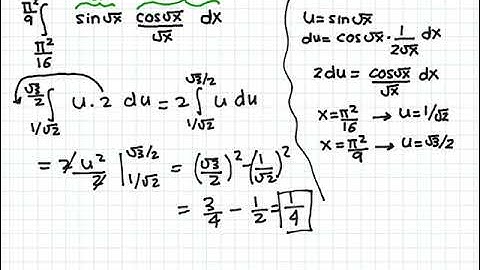 ∫_{π²/16}^{π²/9} sin√x cos√x/√x dx
∫_{1/√2}^{√3/2} u.2 du = 2∫_{1/√2}^{√3/2} u du
= 2u²/2 |_{1/√2}^{√3/2} = (√3/2)² - (1/√2)²
= 3/4 - 1/2 = 1/4
u = sin√x
du = cos√x · 1/2√x dx
2du = cos√x/√x dx
x = π²/16 → u = 1/√2
x = π²/9 → u = √3/2